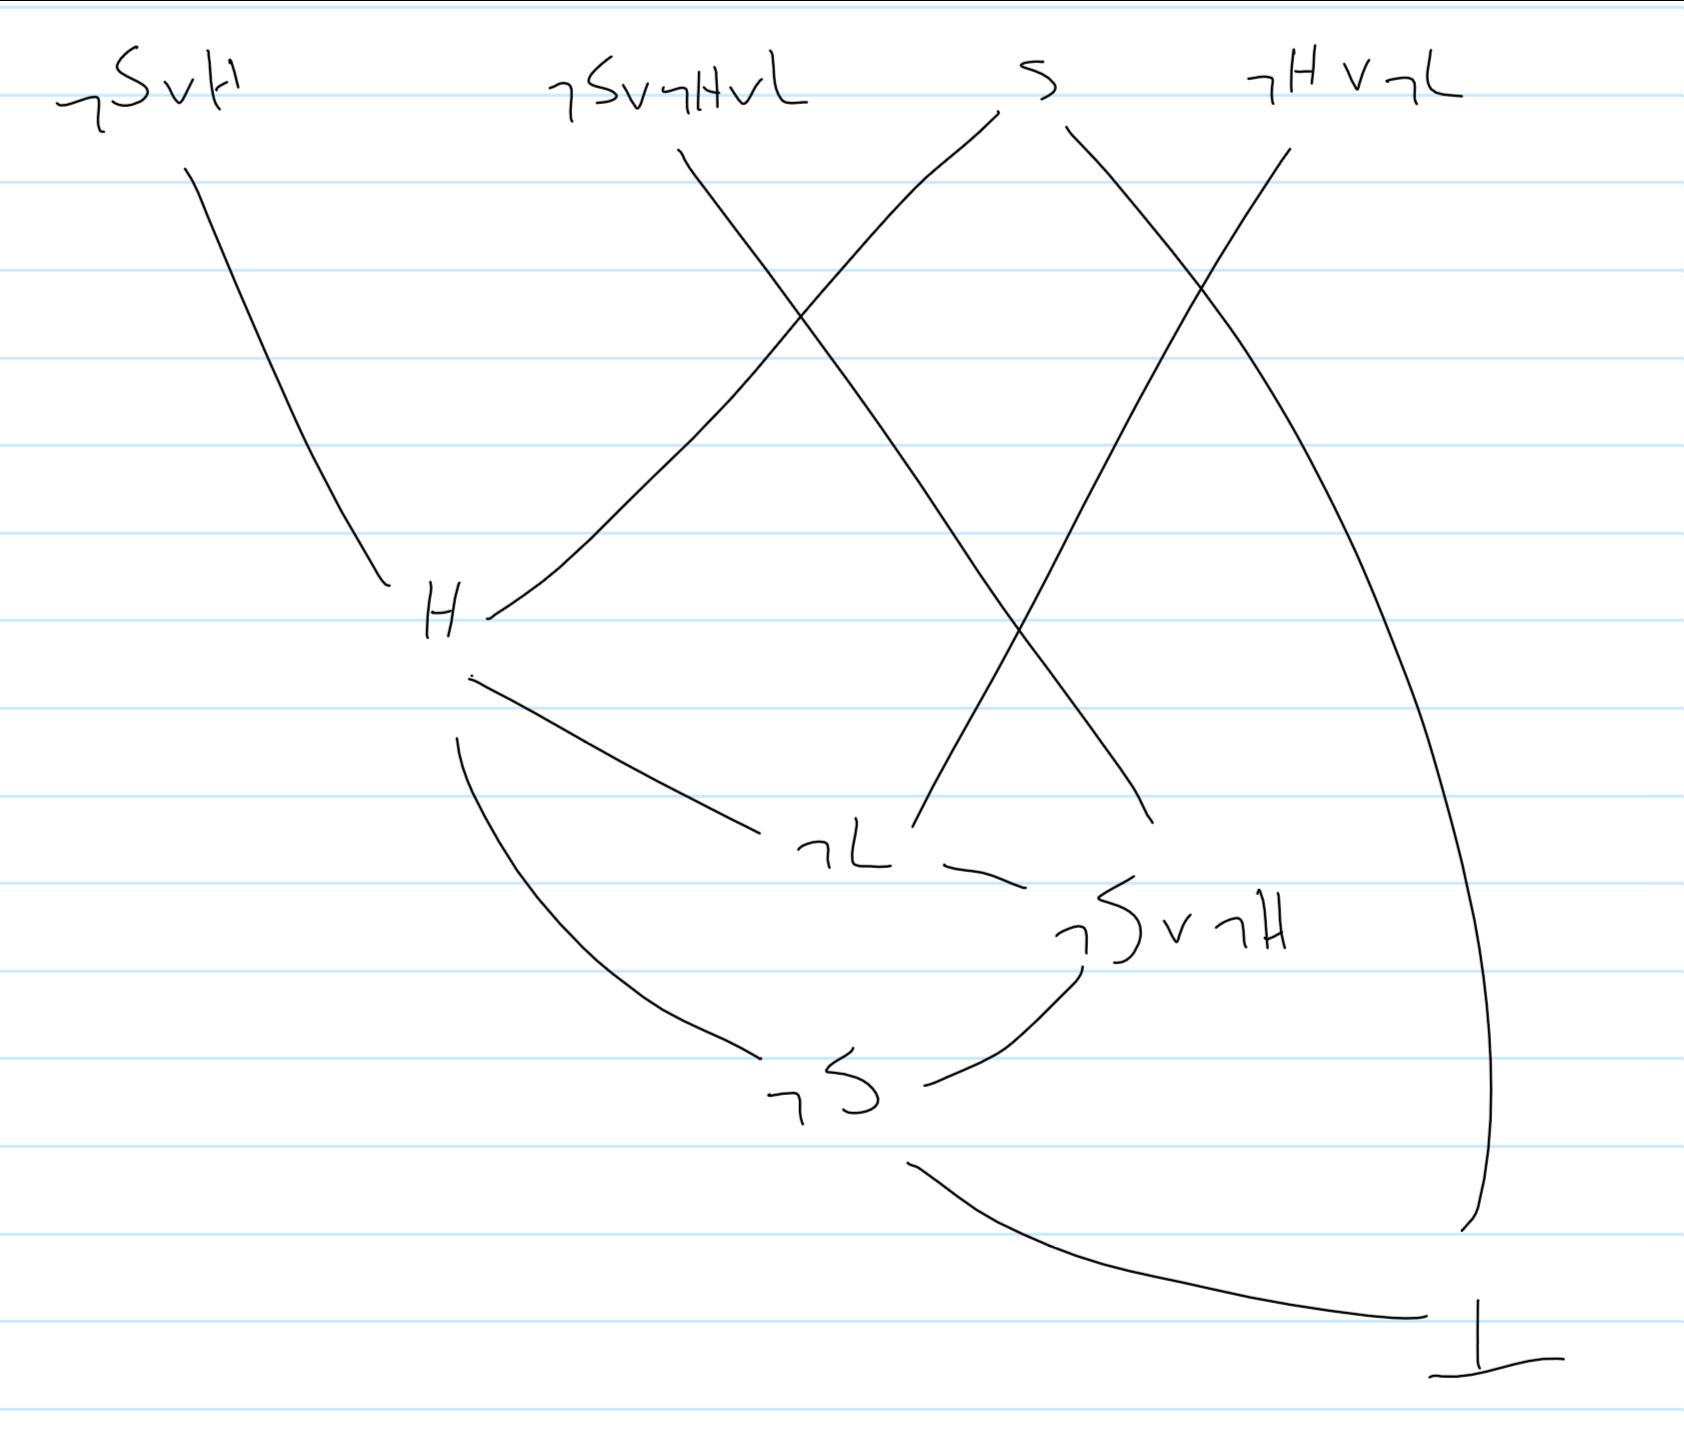 ¬S∨H ¬S∨¬H∨L S ¬H∨¬L
H
¬L
¬S∨¬H
¬S
⊥